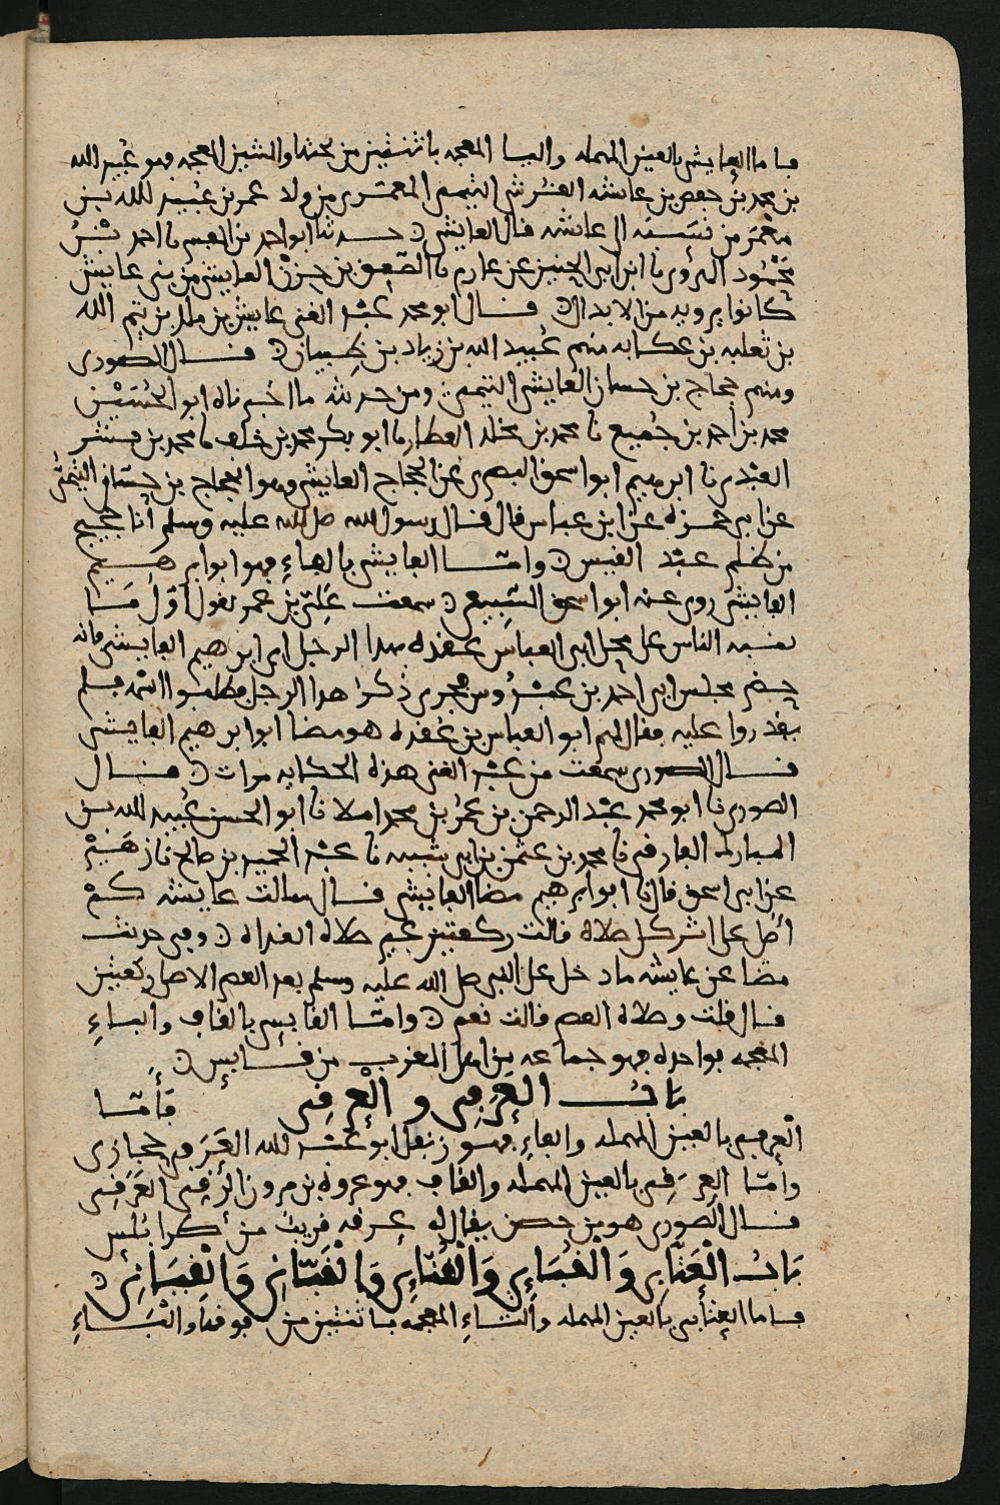 فاما العايشي بالعين المهملة واليا المعجمه باثنتين من تحتها والشين المعجمه فهو عُبيد الله
بن محمد بن حفص بن عايشه القرشي التيمي المعمري من ولا عمر بن عُبيد الله بن
معْمَر من نسَبه الى عائشه قال العايشي ۞ حـدثنا ابو احمد بن ... نا احمد بن
محمُود الهروي نا ابن ابي الحنين عن عارم نا الصَّعِق بن حَزن العايشي من بني عايش
كانوا يرويه من الابدال ۞ قـال ابو محمد عبْد الغني عايش بن ملك بن تيم الله
بن ثعلبه بن عكابه منهم عُبيد الله بن زياد بن ظبيان ۞ قـال الصوري
ومنهم حجاج بن حسان العايشي التيمي ومن حديثه ما اخبرناه ابو الحُسَيْن
محمد بن احمد بن جُميع نا محمد بن مخلد العطار نا ابو بكر محمد بن خلف نا محمد بن
العبْدي نا ابرهيم ابو اسحق البصري عن الحجاج العايشي وهو الحجاج بن حسَّان التيميّ
عن ابي حمزه عن ابن عباس قال قـال رسول الله صلى الله عليه وسلم انا حجيج
من ظلم عبْد القيس ۞ وامَّـا الفايشي بالفاءِ فهو ابو ابرهـيم
الفايشي روى عنه ابو اسحق السَّبيعي ۞ سمعت عَليّ بن عمر يقول اوّل مَـا
نسبه الناس على محل ابي العباس بن عقده بهذا الرجل ابي ابرهيم الفايشي فانه
حضر مجلس ابي احمد بن عبْدُوس فجرى ذكر هذا الرجل فطلبوا اسمه فلم
يقدروا عليه فقال لهم ابو العباس بن عُقده هو مضا ابو ابرهيم الفايشي
قـال الصوري سمعت من عبْد الغني هذه الحكايه مرات ۞ قـال
الصوري نا ابو محمد عبْد الرحمن بن عمَر بن محمد املا نا ابو الحسن عُبيد الله بن
المبارك الفارقي نا محمد بن عثمن بن ابي شيبه نا عبْد الحميد بن صالح نا زهَيْر
عن ابي اسحق قال نا ابو ابرهيم مضا الفايشي قـال سالت عايشه كمْ
اصلي على اثر كل صلاة قالت ركعتين غير صلاة الغداه ۞ وفي حديث
مضا عن عايشه ما دخل على النبي صلى الله عليه وسلم بعد العصر الا صلى ركعتين
قـال قلت وصلاة العصر قالت نعم ۞ وامَّـا القابسي بالقاف والبـاءِ
المعجمه بواحده فهو جماعه من اهل المغرب من قـابس ۞
بَابُ العَرَفي و العِرقي فَأمَّـا
العرفي بالعين المهمله والفاءِ فهو زنفل ابو عبْد الله العَرَفي حجازى
وأمَّـا العِرْقي بالعين المهمله والقاف فهو عروة بن مرون الرقي العِرقي
قـال الصوري هو من حصن يقال له عِرقه قريب من أطرابلس
بَابُ الْعَتَّابي وَالغُبَابي وَالْقُبَابي وَالْقَبَّاني وَالْقِبَبَاني ۞
فـاما العتابي بالعين المهمله والتـاءِ المعجمه باثنتين من فوقها والبَـاءِ